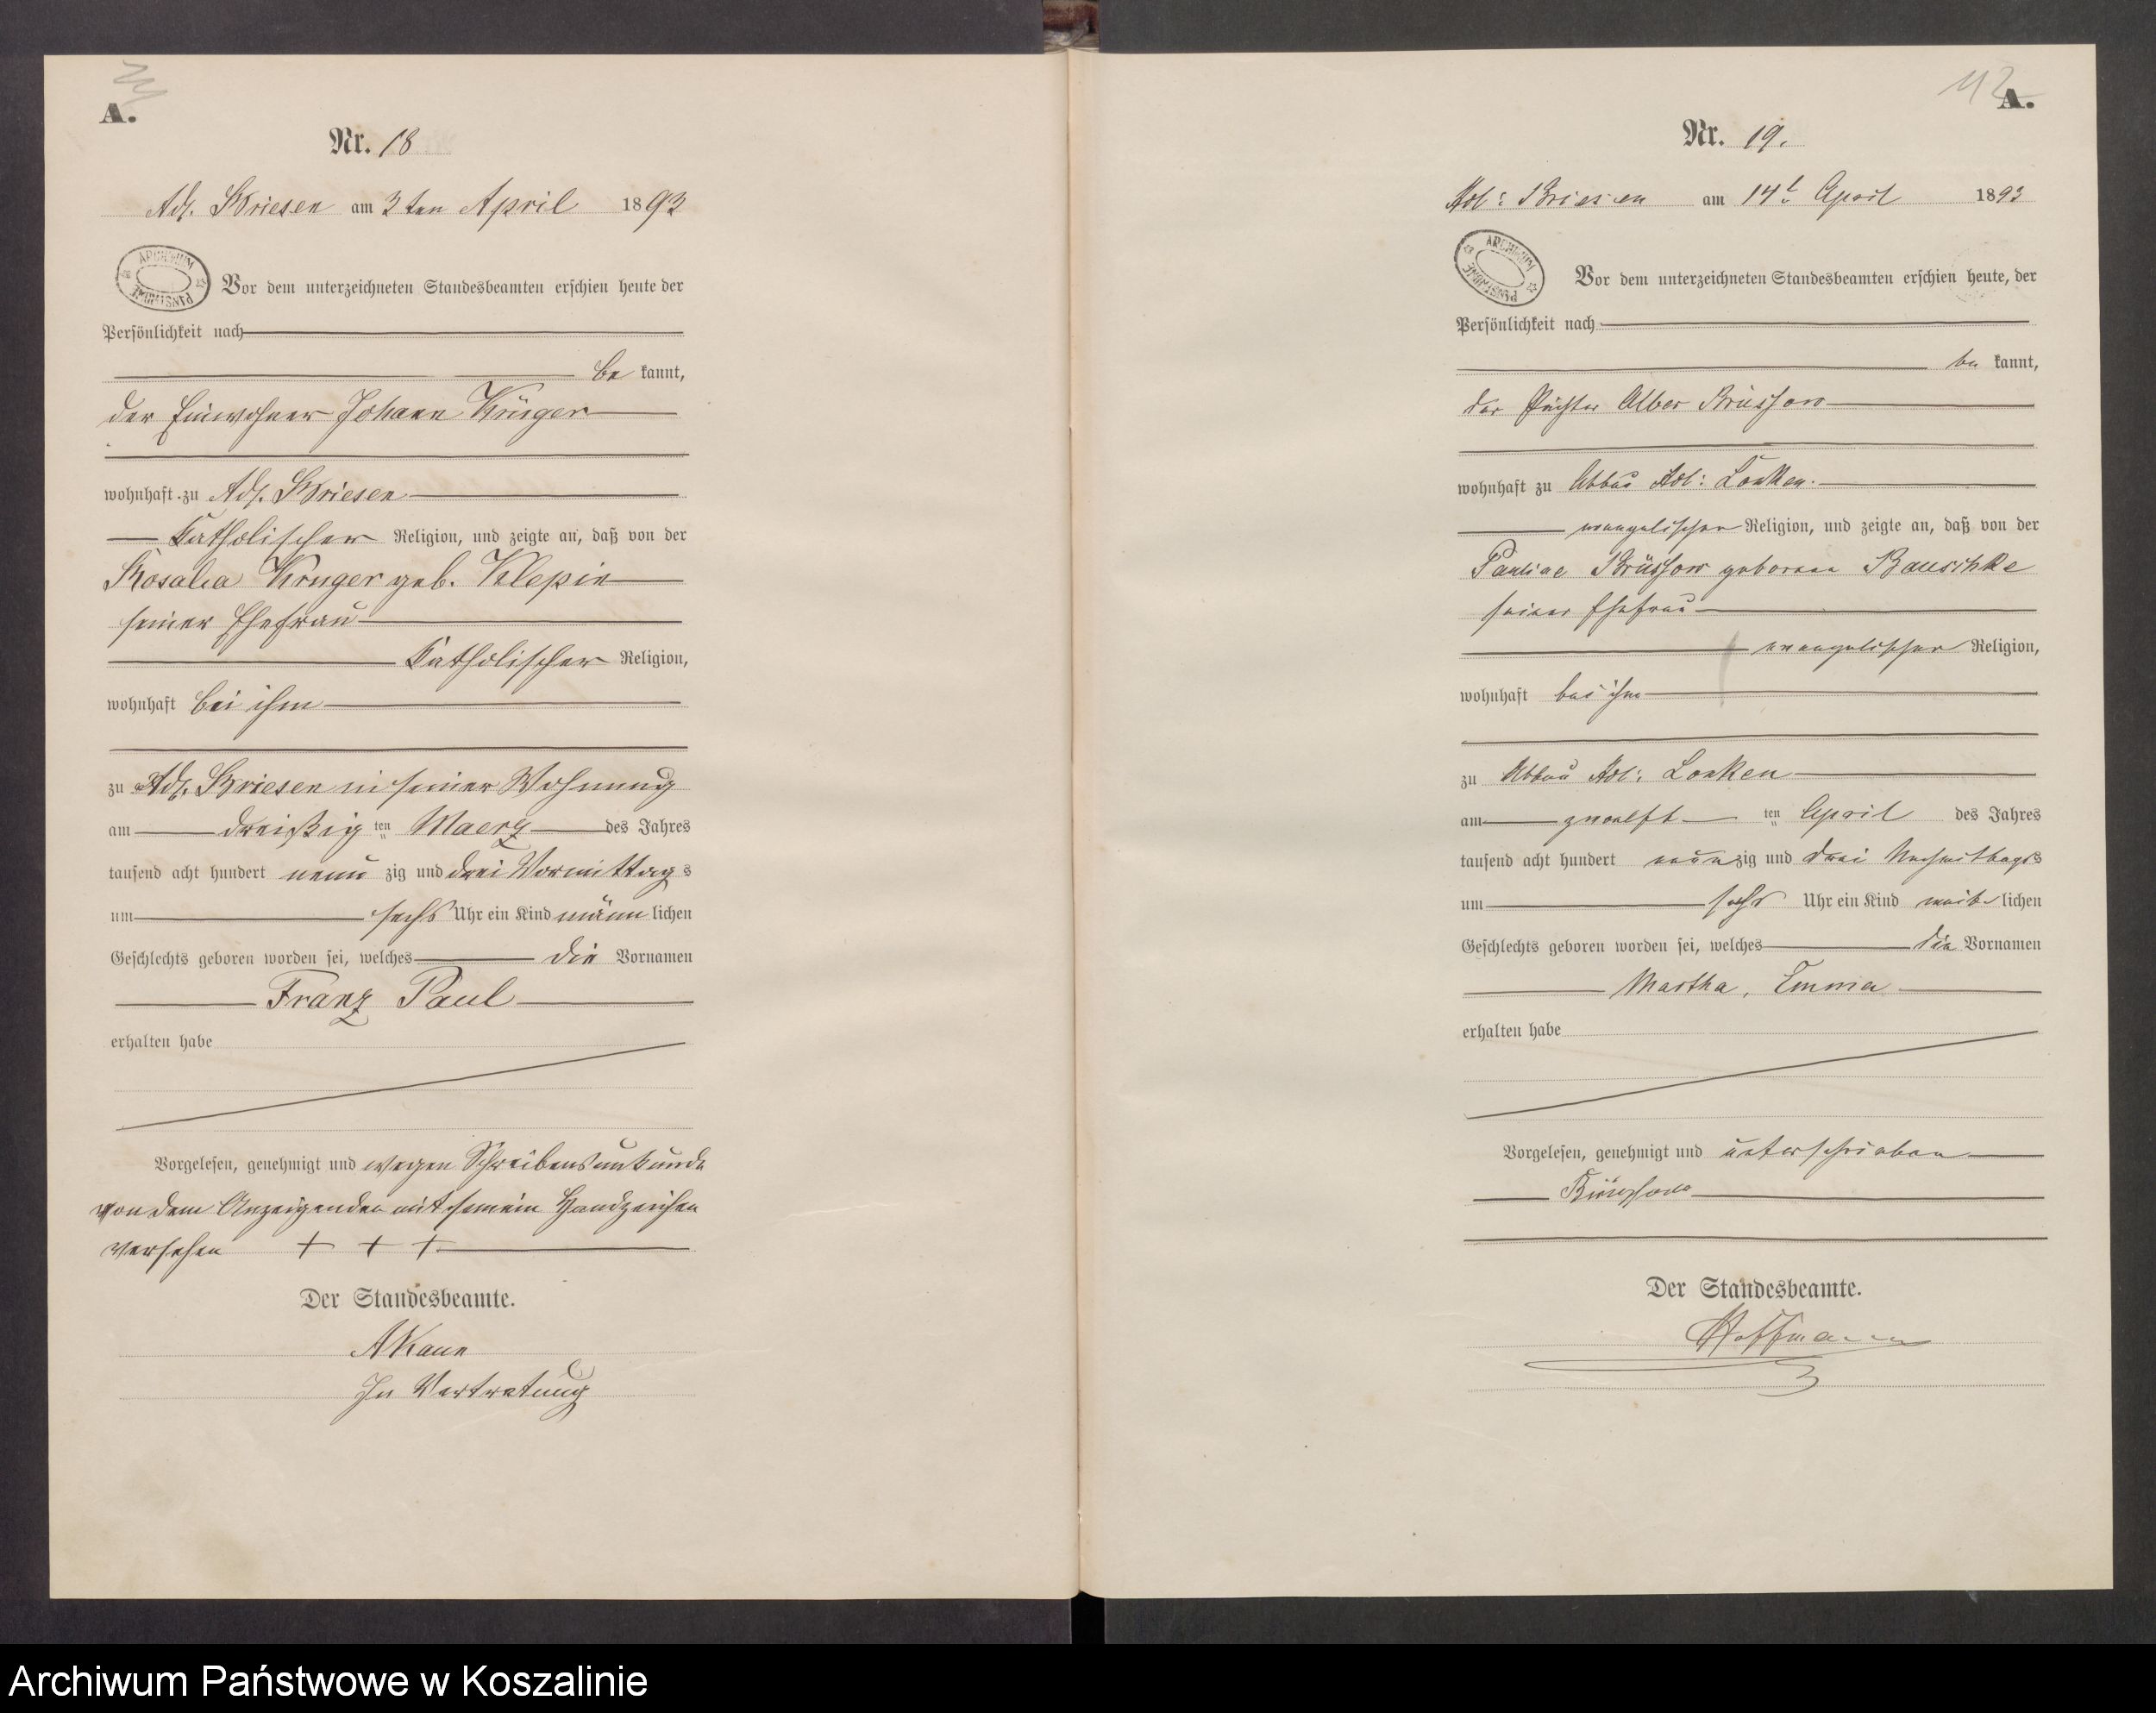 A.
Nr. 18
Adl. Briesen am 3 ten April 1893
ARCHIWUM PAŃSTWOWE
Vor dem unterzeichneten Standesbeamten erschien heute der
Persönlichkeit nach
be kannt,
der Einwohner Johann Krüger
wohnhaft zu Adl. Briesen
Katholischer Religion, und zeigte an, daß von der
Rosalia Krüger geb. Klepin
seiner Ehefrau
Katholischer Religion,
wohnhaft bei ihm
zu Adl. Briesen in seiner Wohnung
am dreißig ten Maerz des Jahres
tausend acht hundert neun zig und drei Vormittag s
um sechs Uhr ein Kind männ lichen
Geschlechts geboren worden sei, welches die Vornamen
Franz Paul
erhalten habe
Vorgelesen, genehmigt und wegen Schreibensunkunde
von dem Anzeigenden mit seinem Handzeichen
versehen + + +
Der Standesbeamte.
A Kann
In Vertretung
112
A.
Nr. 19.
Adl: Briesen am 14t April 1893
ARCHIWUM PAŃSTWOWE
Vor dem unterzeichneten Standesbeamten erschien heute, der
Persönlichkeit nach
be kannt,
der Pächter Alber Brüssow
wohnhaft zu Abbau Adl: Lonken.
evangelischer Religion, und zeigte an, daß von der
Pauline Brüssow geborene Bauschke
seiner Ehefrau
evangelischer Religion,
wohnhaft bei ihm
zu Abbau Adl: Lonken
am zwoelft ten April des Jahres
tausend acht hundert neun zig und drei Nachmittags
um sechs Uhr ein Kind weib lichen
Geschlechts geboren worden sei, welches die Vornamen
Martha, Emma
erhalten habe
Vorgelesen, genehmigt und unterschrieben
Brüssow
Der Standesbeamte.
Hoffmann
Archiwum Państwowe w Koszalinie